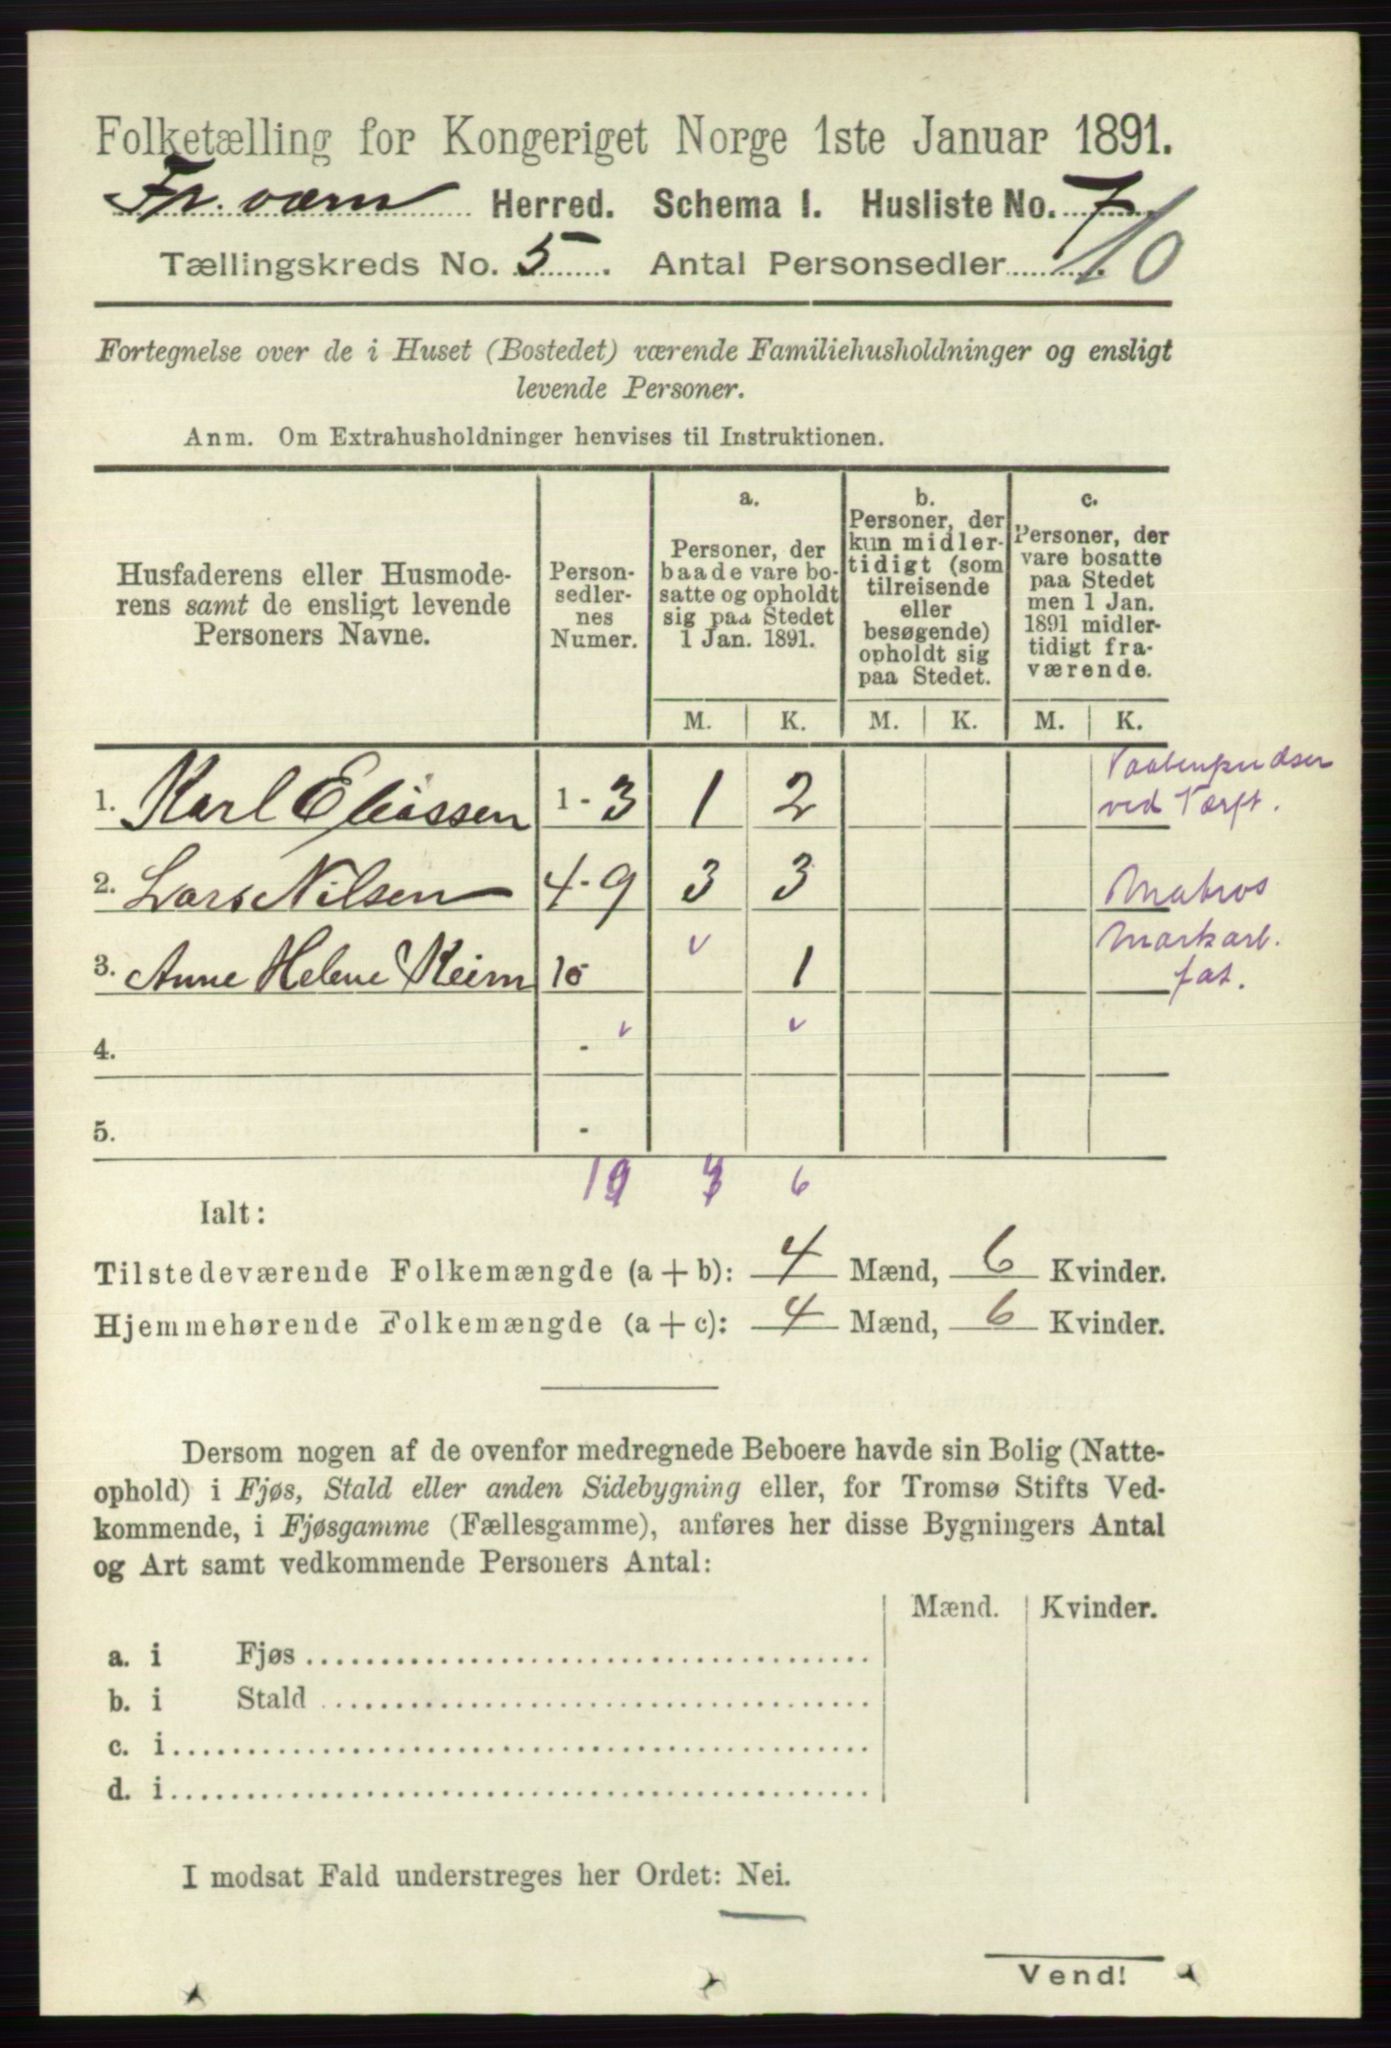 Folketælling for Kongeriget Norge 1ste Januar 1891.
Fr. værn Herred. Schema I. Husliste No. 7.
Tællingskreds No. 5. Antal Personsedler 10
Fortegnelse over de i Huset (Bostedet) værende Familiehusholdninger og ensligt
levende Personer.
Anm. Om Extrahusholdninger henvises til Instruktionen.
Husfaderens eller Husmode-
rens samt de ensligt levende
Personers Navne.
Person-
sedler-
nes
Numer.
a.
Personer, der
baade vare bo-
satte og opholdt
sig paa Stedet
1 Jan. 1891.
b.
Personer, der
kun midler-
tidigt (som
tilreisende
eller
besøgende)
opholdt sig
paa Stedet.
c.
Personer, der
vare bosatte
paa Stedet
men 1 Jan.
1891 midler-
tidigt fra-
værende.
M. K. M. K. M. K.
1. Karl Eliassen 1 - 3 1 2
Vaabenpudser
ved Værft.
2. Lars Nilsen 4 - 9 3 3 Matros
3. Anne Helene Keim 10 1
Markarb.
fat.
4. -
5. -
10 6
Ialt:
Tilstedeværende Folkemængde (a + b): 4 Mænd, 6 Kvinder.
Hjemmehørende Folkemængde (a + c): 4 Mænd, 6 Kvinder.
Dersom nogen af de ovenfor medregnede Beboere havde sin Bolig (Natte-
ophold) i Fjøs, Stald eller anden Sidebygning eller, for Tromsø Stifts Ved-
kommende, i Fjøsgamme (Fællesgamme), anføres her disse Bygningers Antal
og Art samt vedkommende Personers Antal:
Mænd. Kvinder.
a. i Fjøs
b. i Stald
c. i
d. i
I modsat Fald understreges her Ordet: Nei.
Vend!